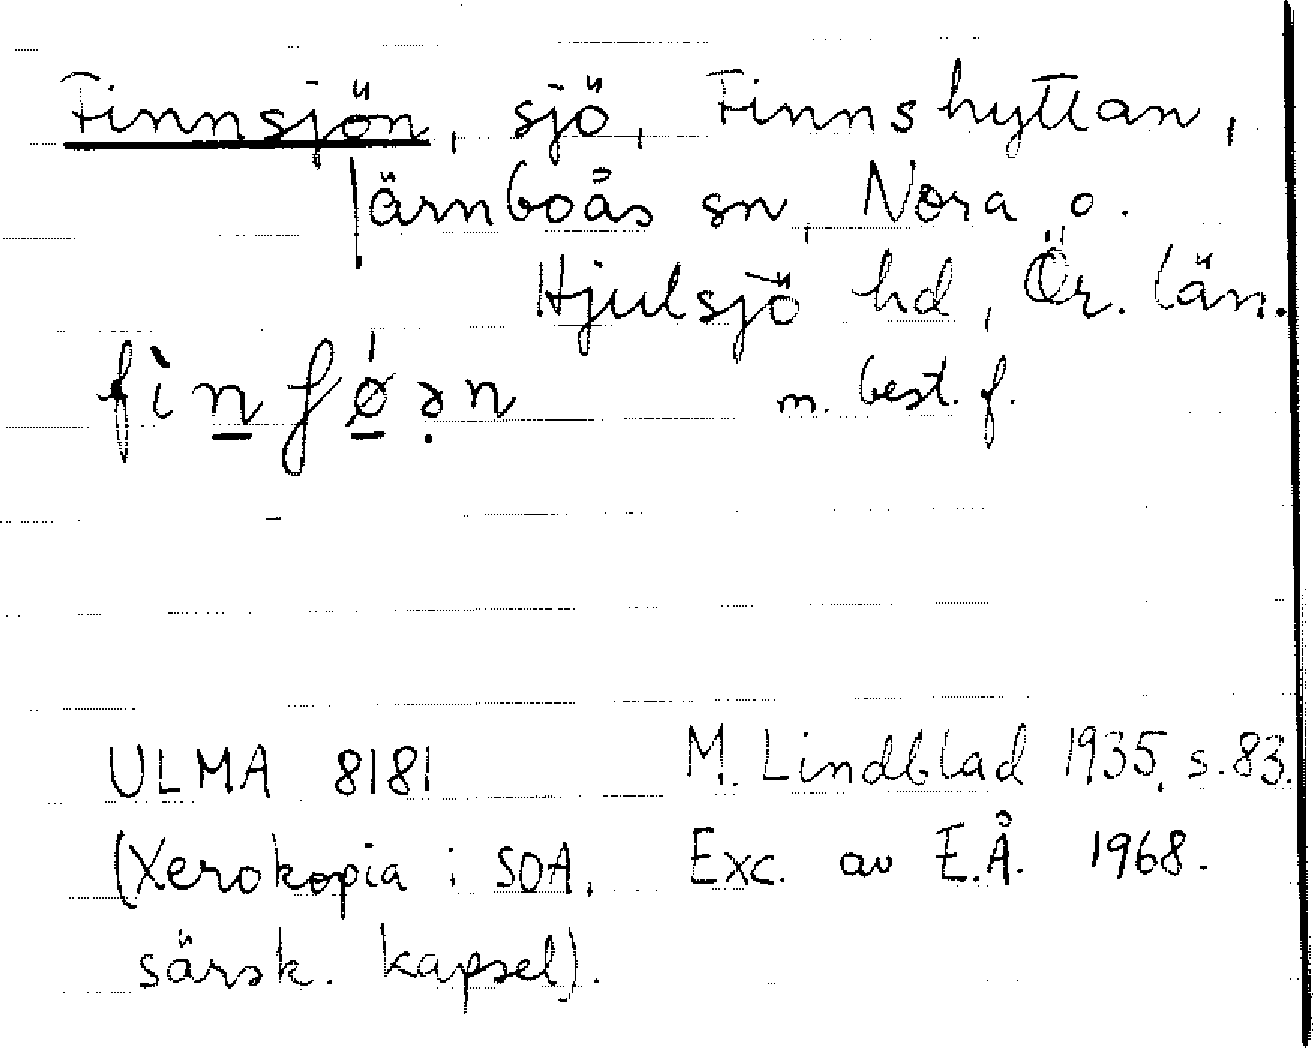 Finnsjön, sjö, Finnshyttan,
Järnboås sn, Nora o.
Hjulsjö hd, Ör. län.
fìnʃǿən m. best. f.
ULMA 8181 M. Lindblad 1935, s. 83.
(Xerokopia i SOA, Exc. av E.Å. 1968.
särsk. kapsel).